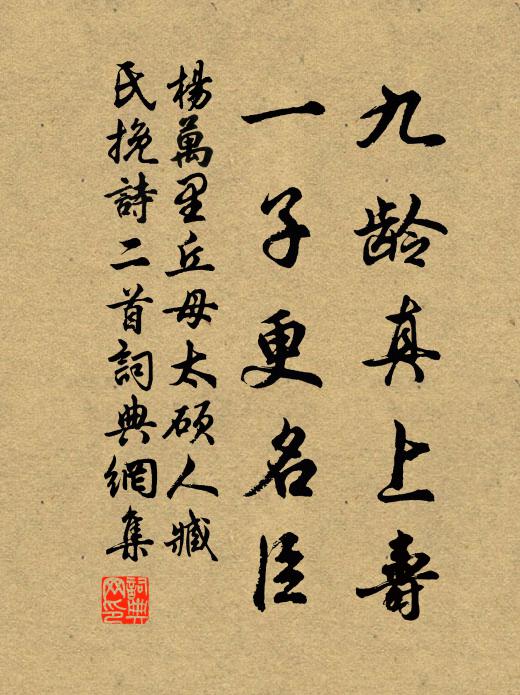 九龄真上壽
一子更名臣
楊萬里丘母太碩人臧
氏挽詩二首詞典網集
詞典
网印